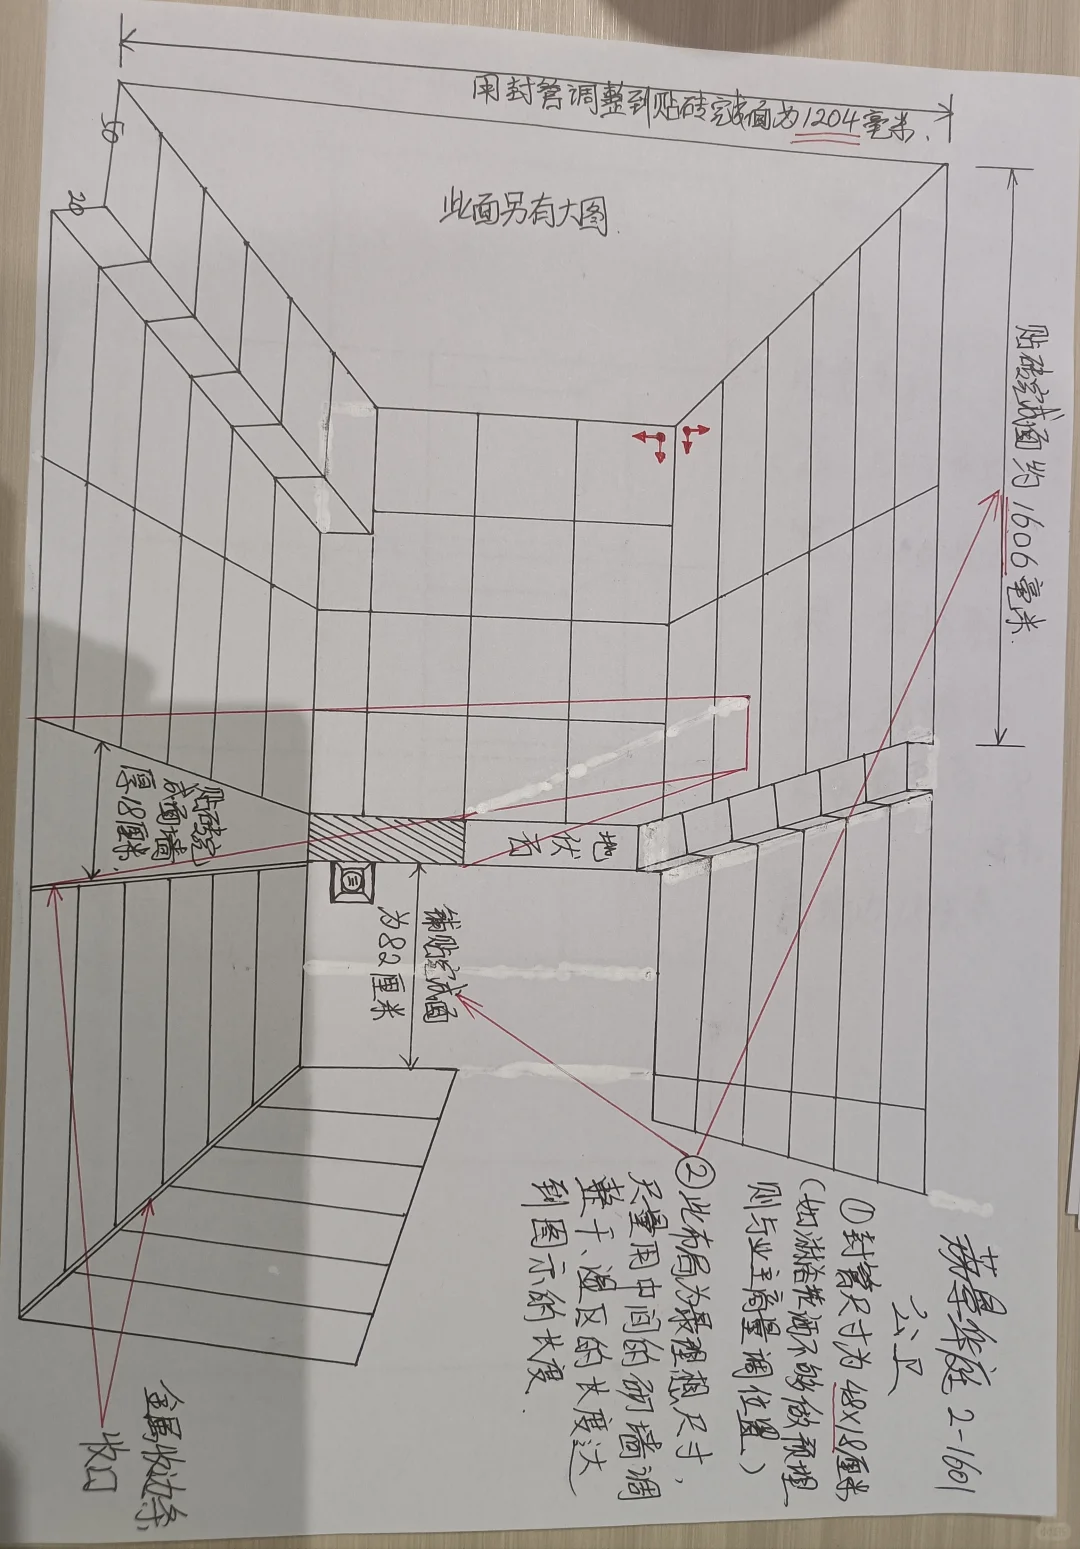 用封管调整到贴砖完成面为1204毫米.
此面另有大图.
50
20
贴砖完成面约1606毫米.
贴砖完
成面墙
厚18厘米.
地伏石
铺贴完成面
为82厘米
2-1601
公卫
①封管尺寸为48×18厘米
(如淋浴花洒不够做预埋
则与业主商量调位置.)
②此布局为最理想尺寸,
尽量用中间的砌墙调
整干、湿区的长度达
到图示的长度.
金属收边条
收口